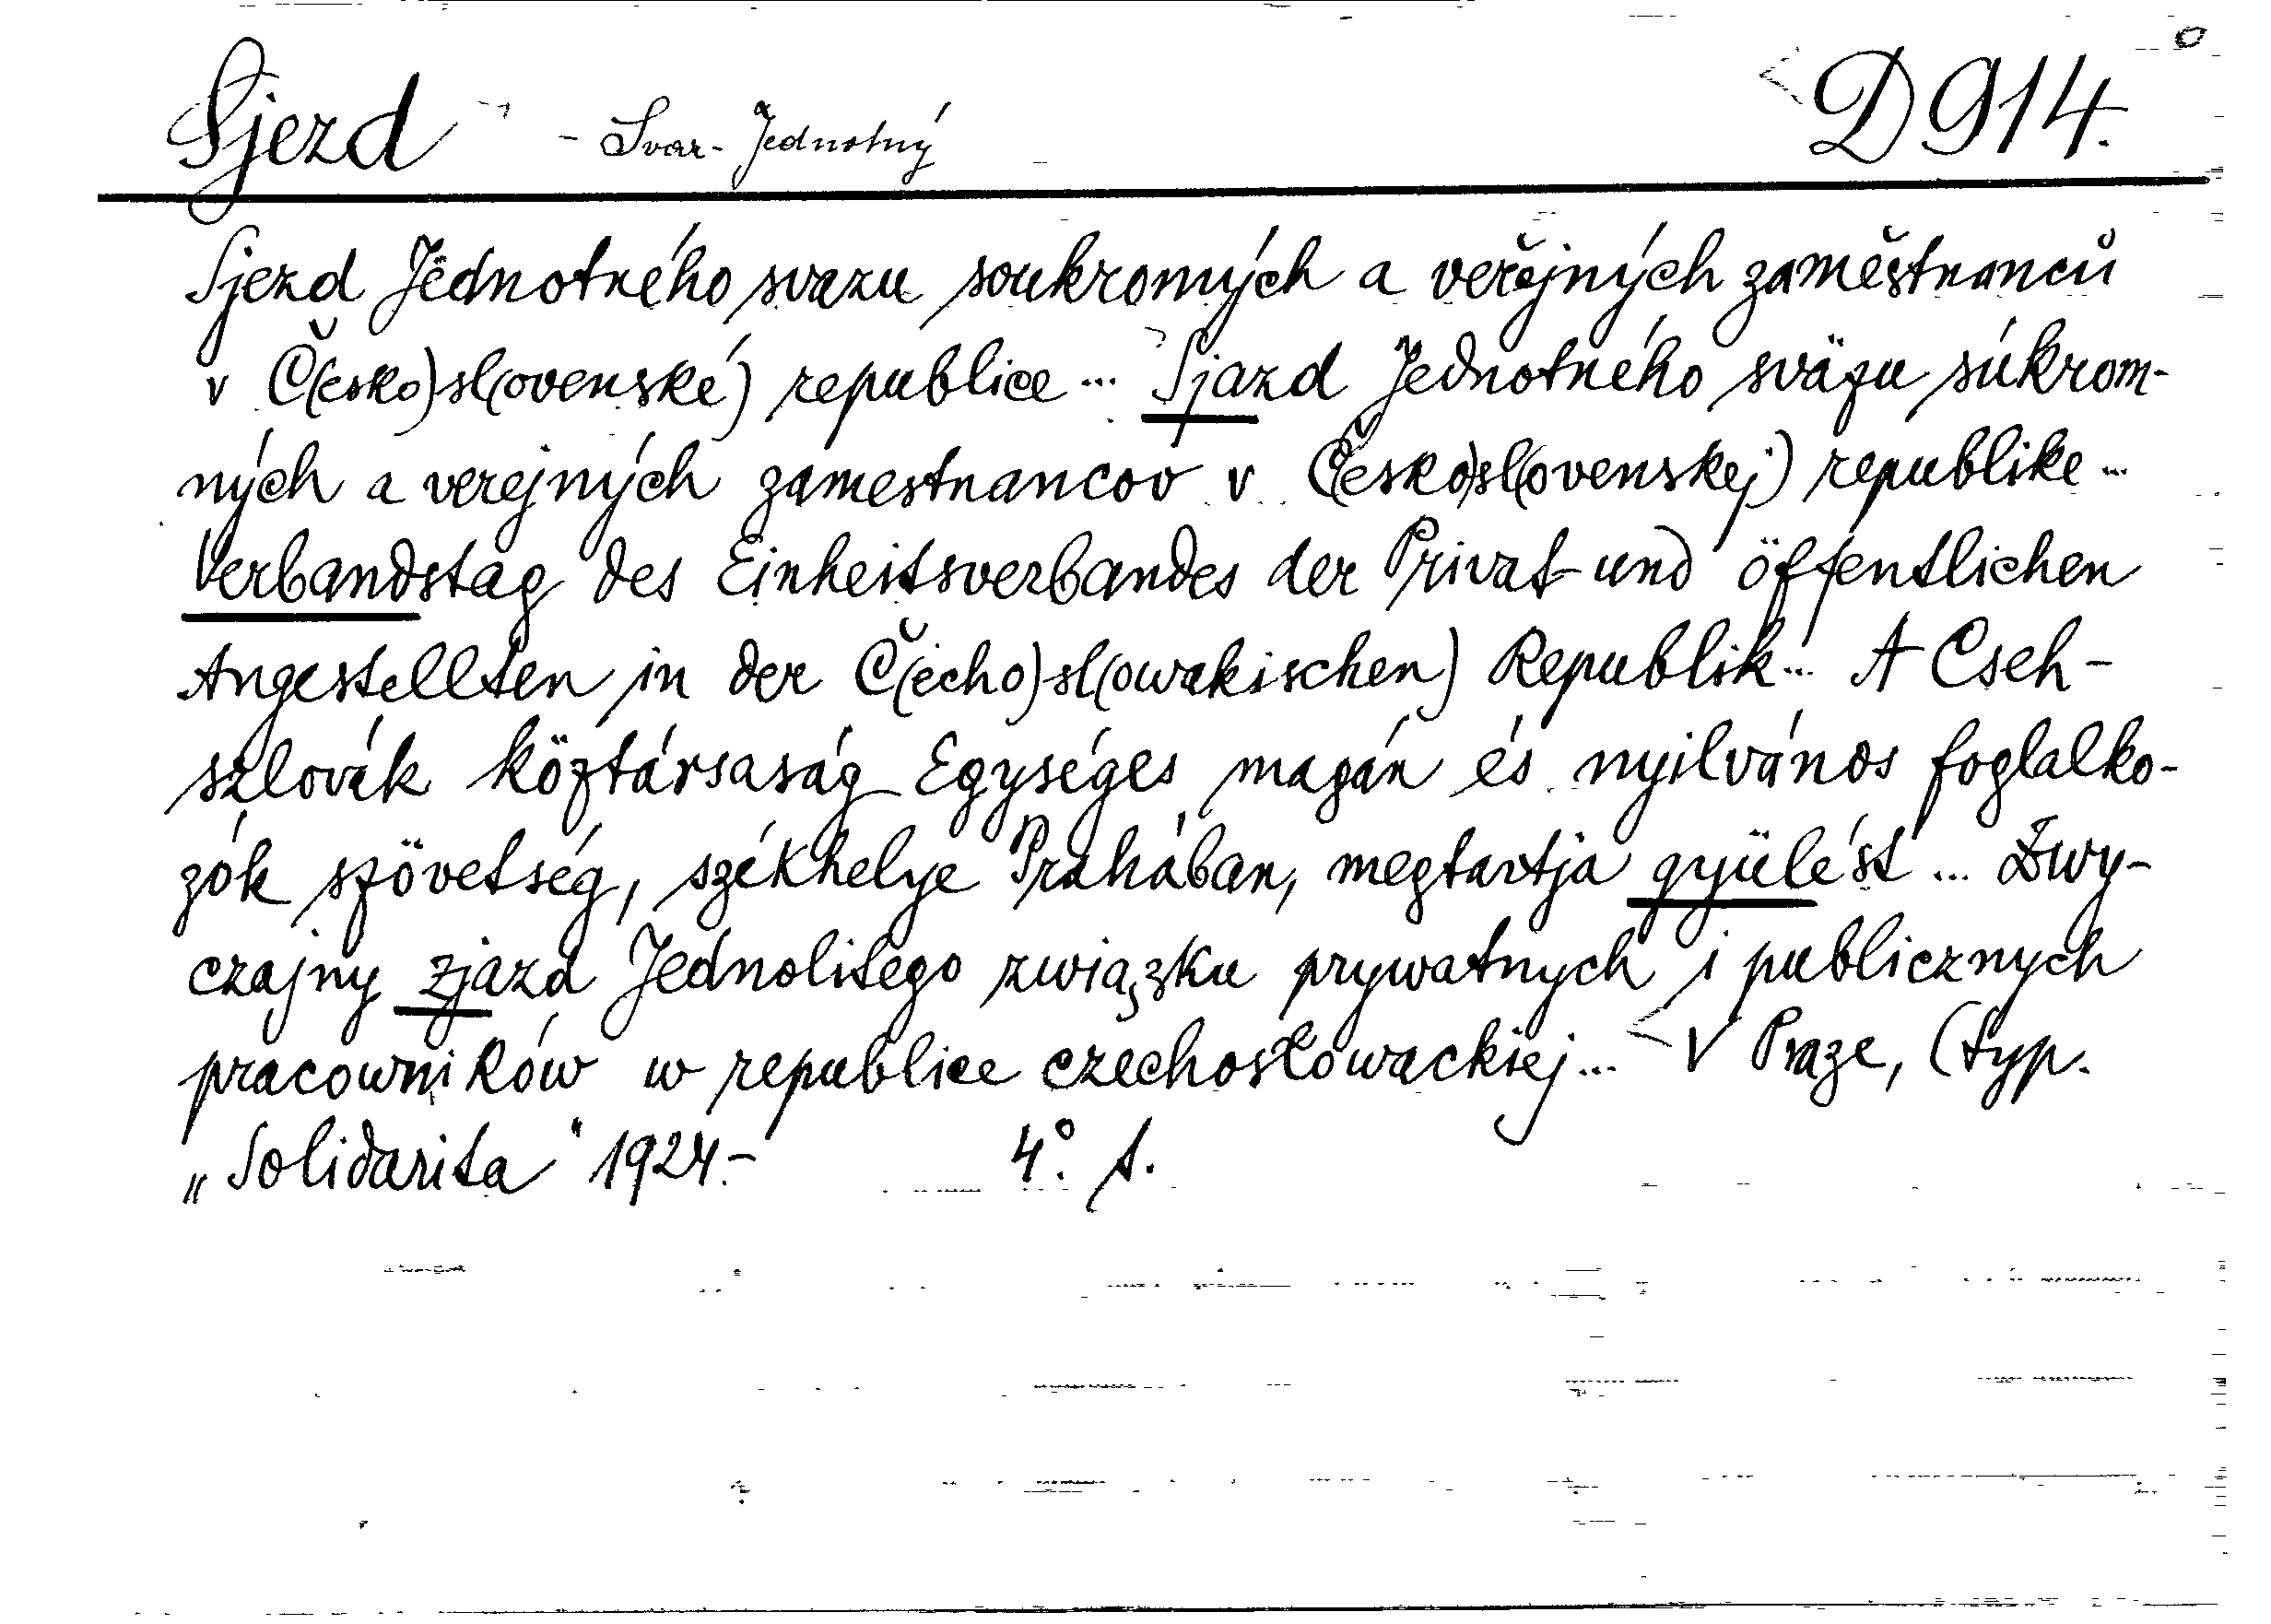 Sjezd - Svaz- Jednotný D 914.
Sjezd Jednotného svazu soukromých a veřejných zaměstnanců
v Č(esko)sl(ovenské) republice ... Sjazd Jednotného sväzu súkrom-
ných a verejných zamestnancov v Č(esko)sl(ovenskej) republike ...
Verbandstag des Einheitsverbandes der Privat- und öffentlichen
Angestellten in der Č(echo)sl(owakischen) Republik... A Cseh-
szlovák köztársaság Egységes magán és nyilvános foglalko-
zók szövetség, székhelye Prahában, megtartja gyülést ... Zwy-
czajny zjazd Jednolitego związku prywatnych i publicznych
pracowników w republice czechosłowackiej... V Praze, (typ.
„Solidarita" 1924.- 4°. s.